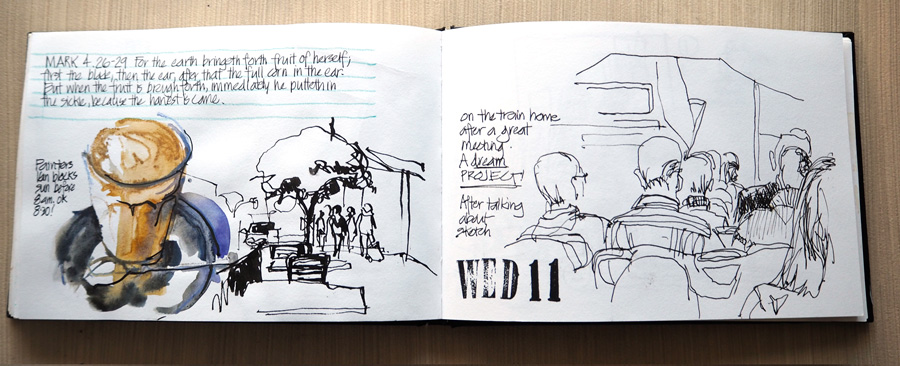 MARK 4.26-29 For the earth bringeth forth fruit of herself;
first the blade, then the ear, after that the full corn in the ear.
But when the fruit is brough forth, immediably he putteth in
the sickle, because the harvest is came.
Painters
van blocks
sun before
8am. ok
830!
on the train home
after a great
meeting.
A dream
PROJECT!
After talking
about
sketch
WED 11